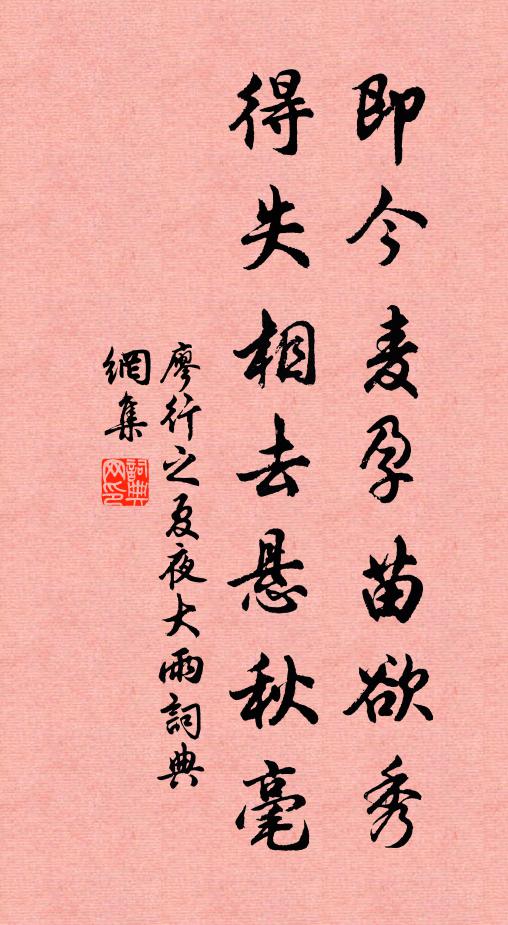 即今麦孕苗欲秀
得失相去悬秋毫
廖行之夏夜大雨詞典
網集
詞典
网印